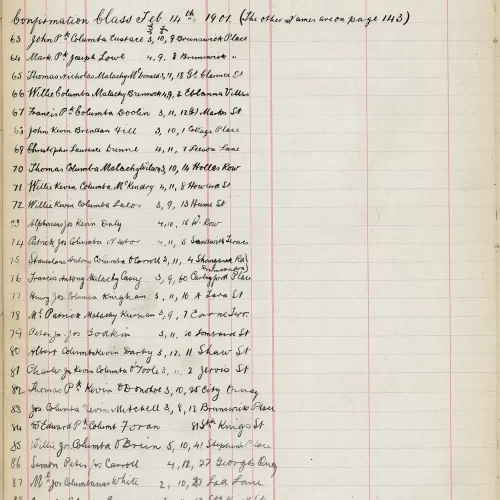 Confirmation Class Feb 14th 1901. (The other names are on page 143)
63 John Pk Columba Eustace 3, 10, 9 Brunswick Place
64 Mark Pk Joseph Lowe 4, 9, 8 Brunswick "
65 Thomas Nicholas Malachy McDonald 3, 11, 13 Gt Clarence St
66 Willie Columba Malachy 4, 9, 2 Eblana Villas
67 Francis Pk Columba Doolin 3, 11, 12 Marks St
John Kevin Brendan Hill 3, 10, 1 Cottage Place
69 Christopher Laurence Dunne 4, 11, 7 Leeson Lane
70 Thomas Columba Malachy Wilson 3, 10, 14 Holles Row
71 Willie Kevin Columba McKendry 4, 11, 8 Howard St
72 Willie Kevin Columba Lalor 3, 9, 13 Hume St
73 Alphonsus Jos Kevin Daly 4, 10, 16 Wm Row
74 Patrick Jos Columba 4, 11, 5 Sandwith Terrace
75 Stanislaus Antony Columba O'Carroll 3, 11, 4 Rd
76 Francis Antony Malachy Casey 3, 9, 60 Place
77 Henry Jos Columba Kinghan 3, 11, 16 A St
78 Ml Patrick Malachy Kiernan 3, 9, 7 Terr.
79 Peter Jos Godkin 3, 11, 20 Lombard St
80 Albert Columba Kevin Darby 3, 12, 11 Shaw St
81 Charles Jos Kevin Columba O'Toole 3, 11, 2 Jervis St
82 Thomas Pk Kevin O'Donohoe 3, 10, 25 City Quay
83 Jos Columba Kevin Mitchell 3, 8, 12 Brunswick Place
84 Edward Pk Columb Foran Sth Kings St
85 Willie Jos Columba O'Brien 3, 10, 41 Stephens Place
86 Simon Peter Jos Carroll 4, 12, 27 Georges Quay
87 Ml Jos Columbanus White 2, 10, Lad Lane